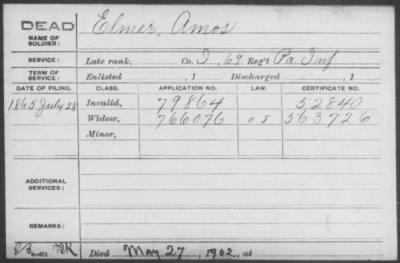 DEAD
NAME OF SOLDIER: Elmer, Amos
SERVICE: Late rank, Co. I, 69 Reg't Pa. Inf
TERM OF SERVICE: Enlisted , 1 Discharged , 1
DATE OF FILING. CLASS. APPLICATION NO. LAW. CERTIFICATE NO.
1865 July 28 Invalid, 79864 52840
Widow, 766076 563726
Minor,
ADDITIONAL SERVICES:
REMARKS:
Died May 27, 1902, at